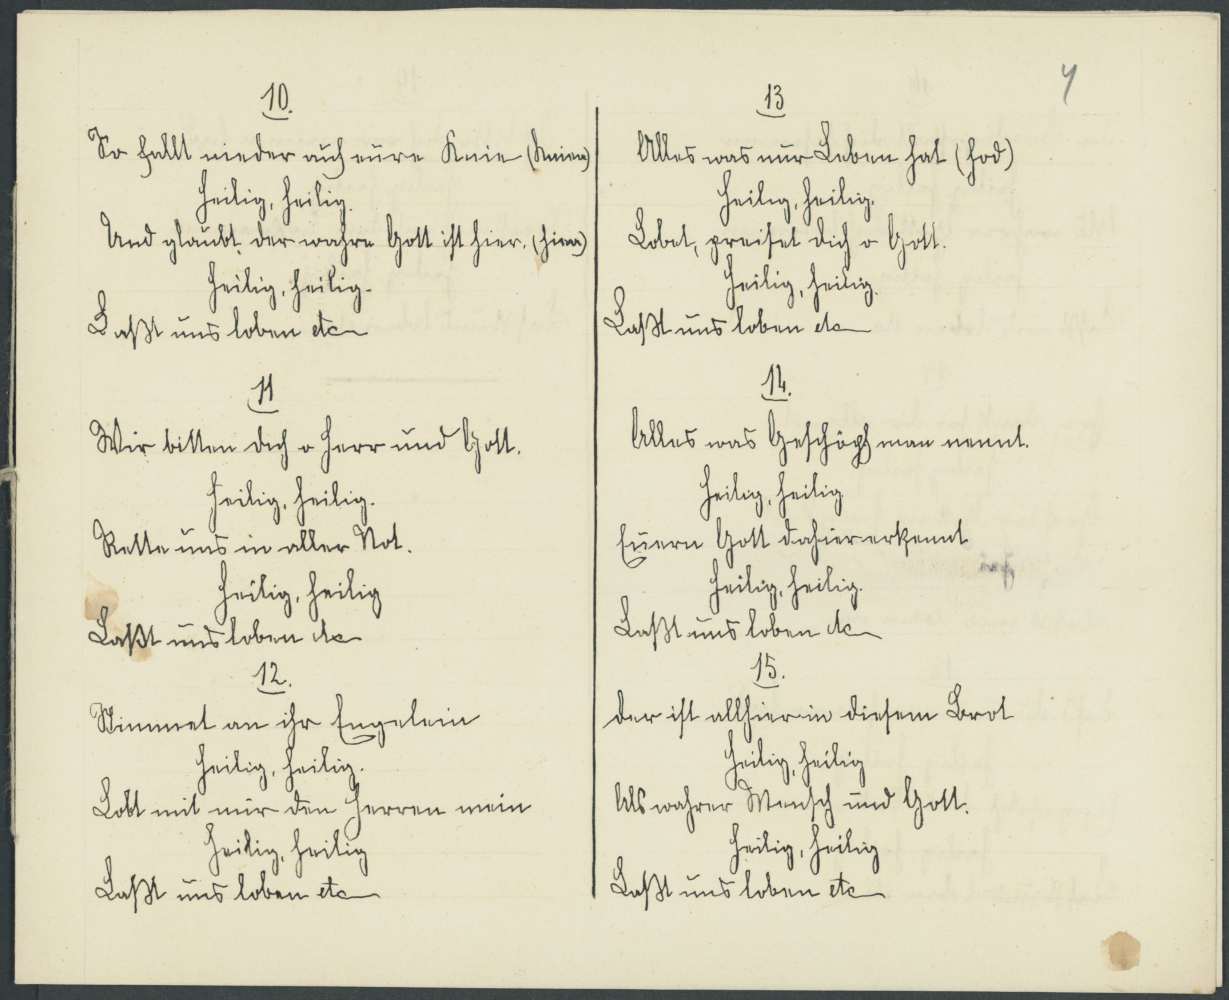 4
10.
So fallt nieder auf eure Knie (Kniea)
Heilig, heilig.
Und glaubt der wahre Gott ist hier. (hiea)
Heilig, heilig.
Laßt uns loben etc
11
Wir bitten dich o Herr und Gott.
Heilig, heilig.
Rette uns in aller Not.
Heilig, heilig
Laßt uns loben etc
12.
Stimmet an ihr Engelein
Heilig, heilig.
Lobt mit mir den Herren mein
Heilig, heilig
Laßt uns loben etc
13
Alles was nur Leben hat (hod)
Heilig, heilig.
Lobet, preiset dich o Gott.
Heilig, heilig.
Laßt uns loben etc
14.
Alles was Geschöpf man nennt.
Heilig, heilig
Euern Gott dahier erkennt
Heilig, heilig.
Laßt uns loben etc
15.
Der ist allhier in diesem Brot
Heilig, heilig
Als wahrer Mensch und Gott.
Heilig, heilig
Laßt uns loben etc